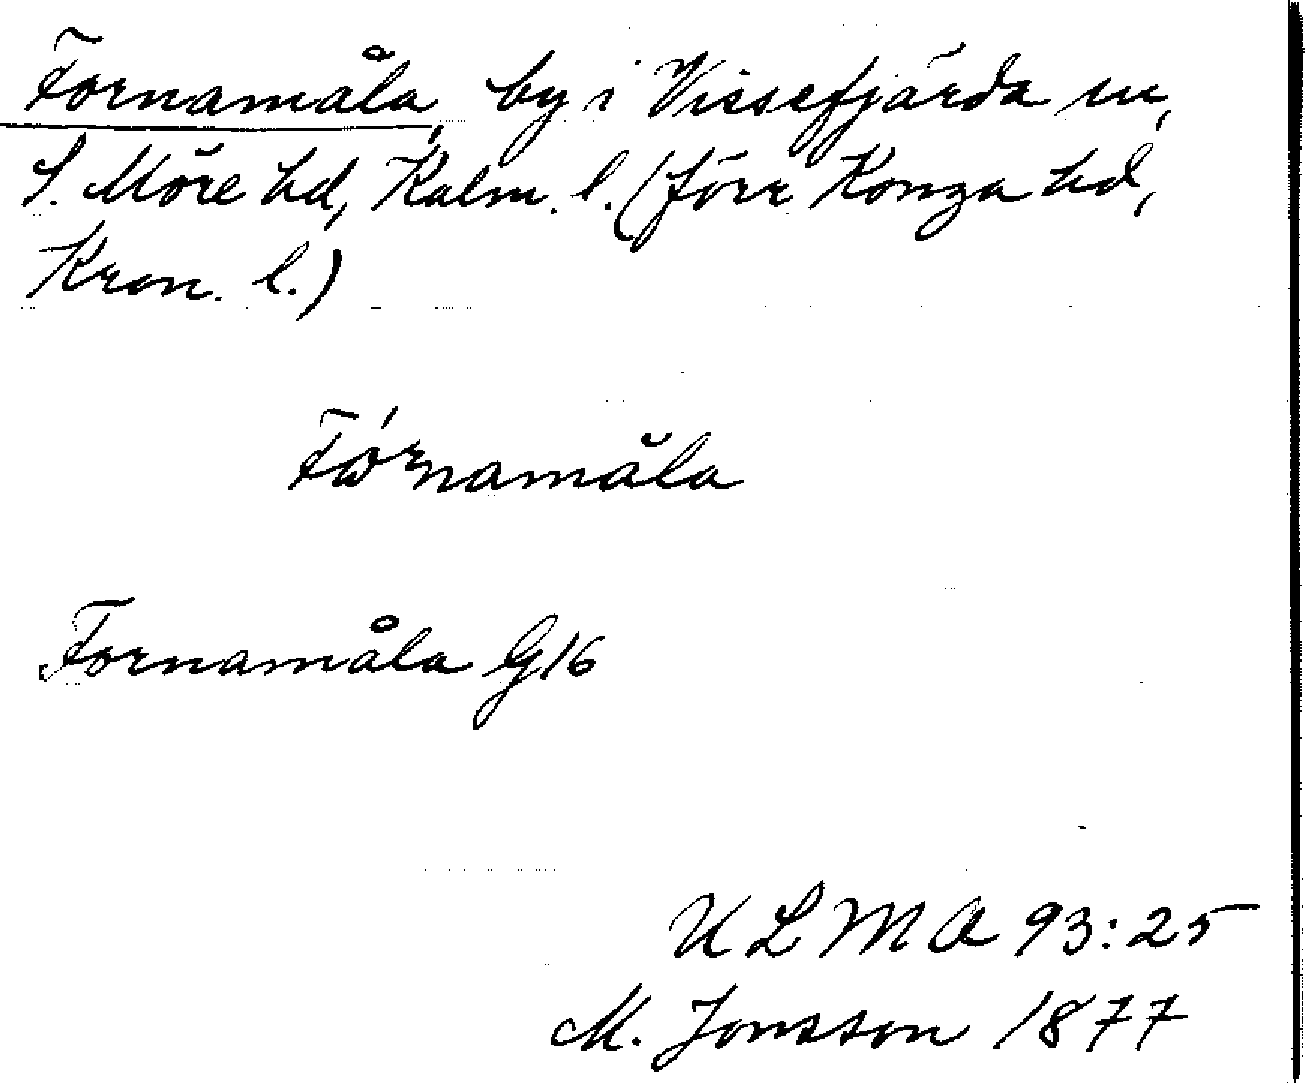 Fornamåla, by i Vissefjärda sn,
S. Möre hd, Kalm. l. (förr Konga hd,
Kron. l.)
Fórnamåla
Fornamåla G16
ULMA 93:25
M. Jonsson 1877